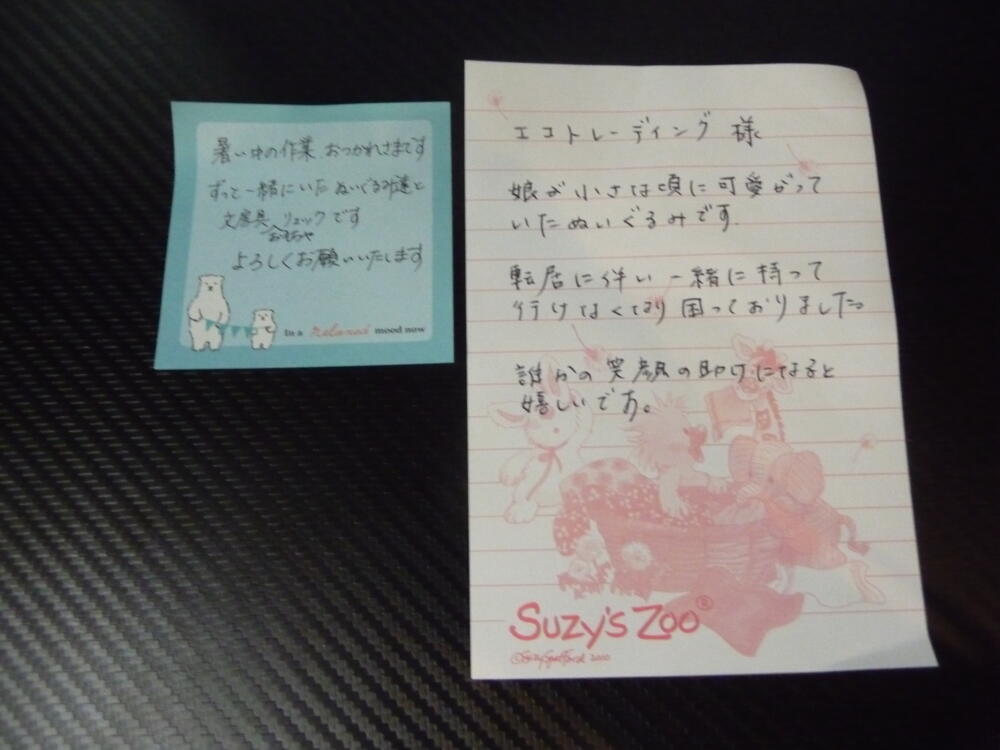 暑い中の作業 おつかれさまです
ずっと一緒にいた ぬいぐるみ達と
文房具、リュックです
おもちゃ
よろしくお願いいたします
In a relaxed mood now
エコトレーディング 様
娘が小さな頃に可愛がって
いたぬいぐるみです。
転居に伴い一緒に持って
行けなくなり困っておりました。
誰かの笑顔の助けになると
嬉しいです。
SUZY'S ZOO®
© Suzy Spafford 2000